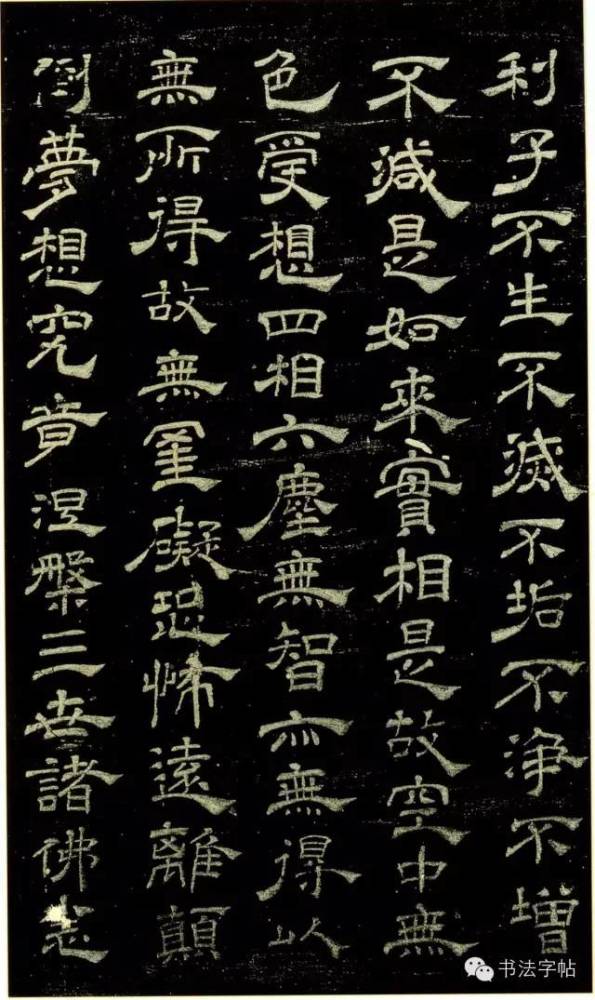 利子不生不滅不垢不淨不增
不減是如來實相是故空中無
色受想四相六塵無智亦無得以
無所得故無罣礙恐怖遠離顛
倒夢想究竟涅槃三世諸佛
书法字帖